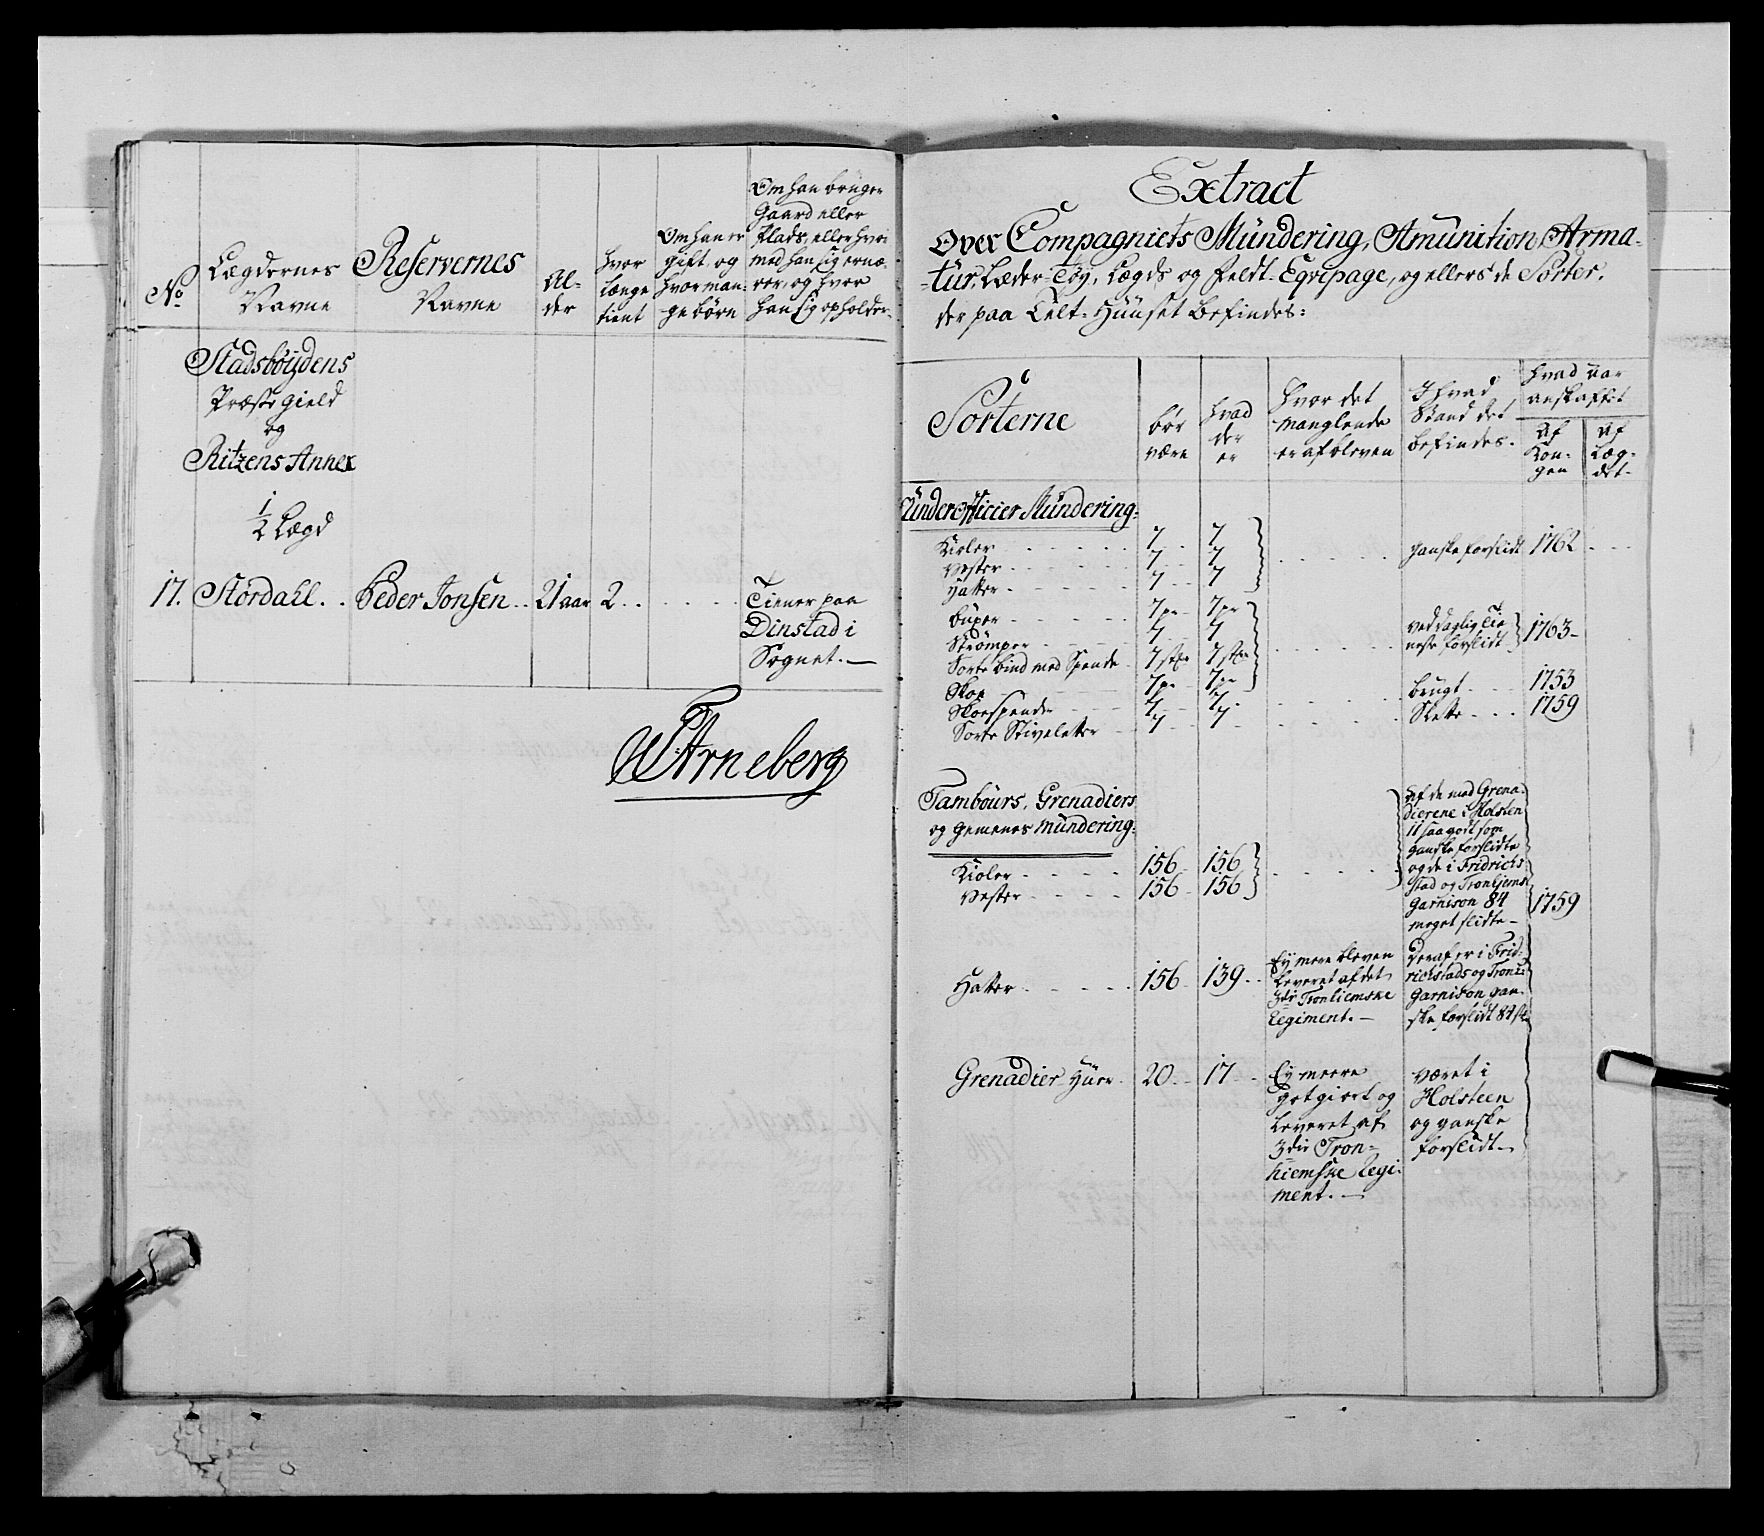 No
Lægdernes
Navne
Reservernes
Navne
Al-
der
hvor
længe
tient
Om han er
gift, og
hvor man-
ge børn
Om han bruger
Gaard eller
Plads, eller hvor
med han sig ernæ-
rer, og hvor
han sig opholder.
Stadsbøÿdens
Præste gield
og
Ritzens Annex
1/2 Lægd
17. Størdahl. . Peder Jonsen . . 21 aar 2 . . . . . . Tiener paa
Dinstad i
Sognet. —
Arneberg
Extract
Over Compagniets Mündering, Amünition, Arma-
-tür, Læder-Tøÿ, Lægds og Feldt-Eqvipage, og ellers de Sorter,
der paa Telt-Hüüset befindes:
Sorterne
bør
være
hvad
der
er
Hvor det
manglende
er afbleven
I hvad
Stand det
befindes.
Hvad aar
anskaffet
Af
Kon-
gen
Af
Læg-
det.
Ünder Officier Mündering:
Kioler . . . . . 7 . . 7
Vester . . . . . 7 . . 7 . . . . ganske forslidt 1762 . . .
Hatter . . . . . 7 . . 7
Buxer . . . . 7 pr 7 pr
Strømper . . . 7 7 ved daglig Tie
neste forslidt 1763 -
Sorte bind med Spende 7 stkr 7 stkr
Skoe . . . 7 pr 7 pr
Skoespender 7 7 . . . brügt . . . 1753
Sorte Stiveletter 7 7 . . . Slette . . . 1759
Tambours, Grenadiers
og Gemenes Mündering.
Kioler . . . . . 156 . 156
Vester . . . . 156 . 156
Af de med Grena-
dierene i Holsten
11 saa godt som
ganske forslidte
og de i Fridrichs
stad og Tronhjems
Garnison 84
meget slidte —
1759
Hatter . . . . . 156 . 139 . .
Ey mere bleven
leveret af det
3die Tronhiemske
Regiment. —
Deraf er i Frid-
richstads og Tronh:
Garnison gan-
ske forslidt 84 st
Grenadier Hüer . 20 . . 17 . .
Ey meere
gotgiort og
leveret af
3die Tron-
hiemske Regi-
ment. —
været i
Holsteen
og ganske
forslidt —